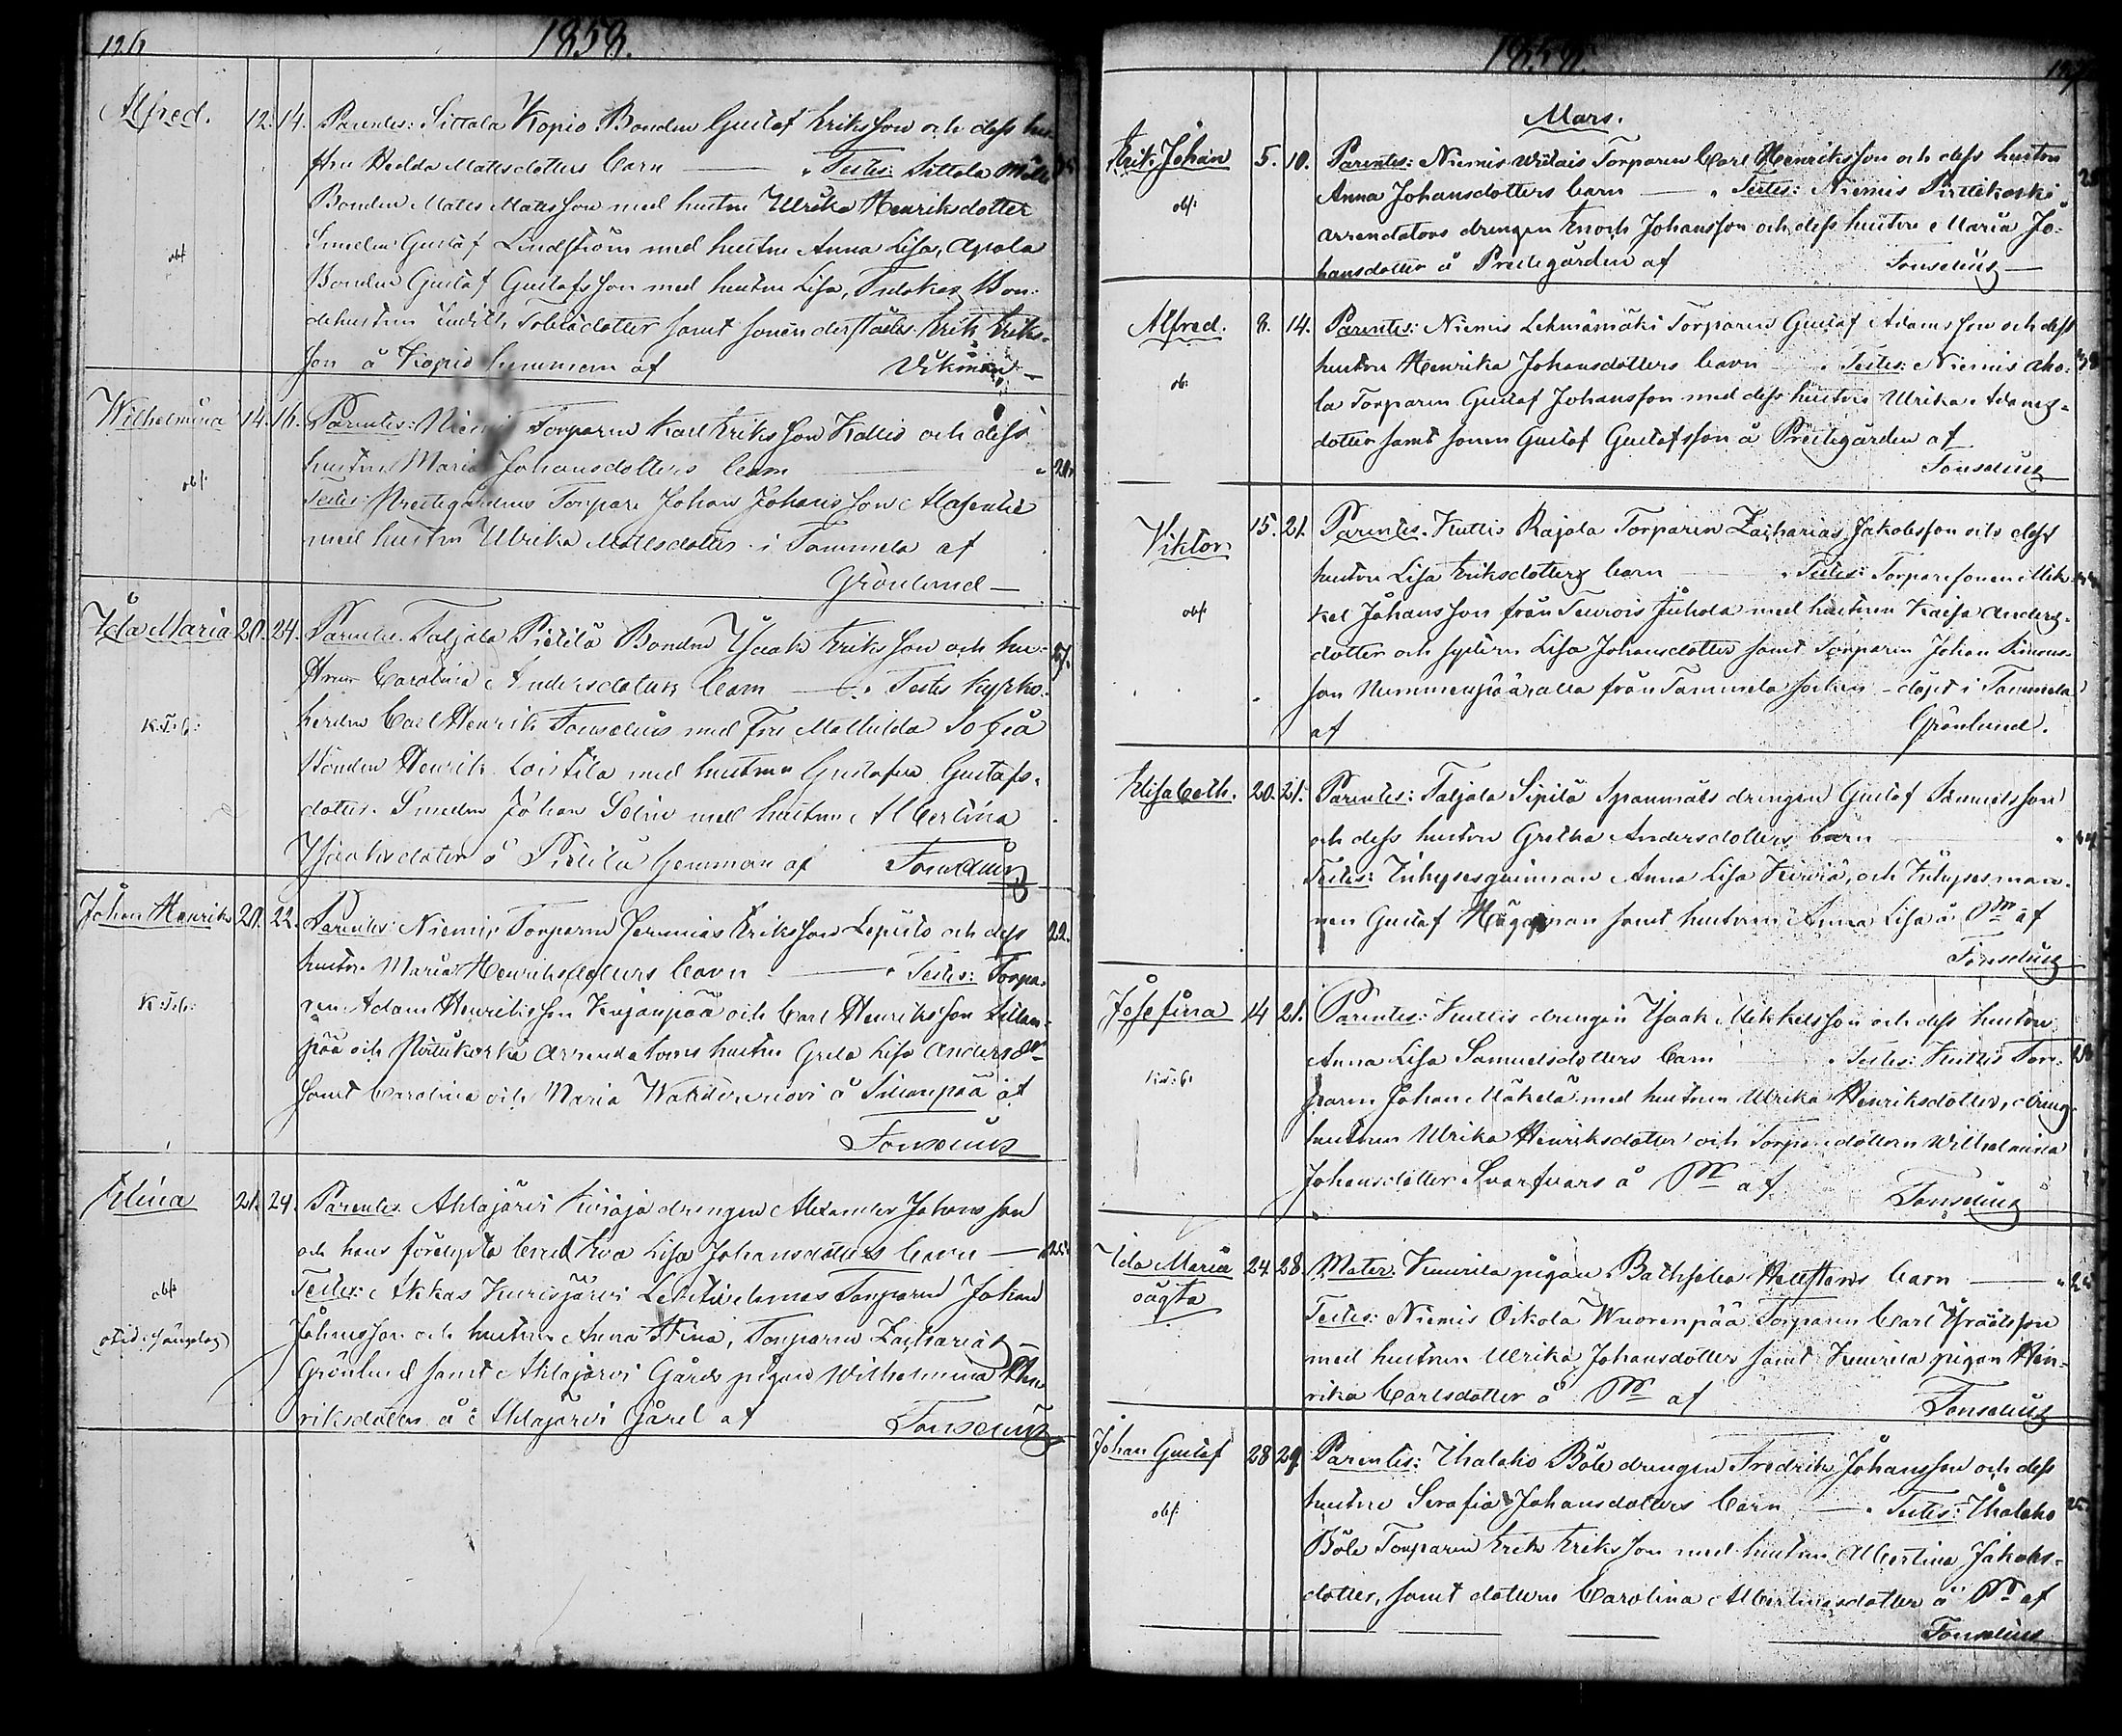 126
1858.
Alfred. 12. 14. Parentes: Sittala Kopio Bonden Gustaf Eriksson och dess hu-
stru Hedda Mattsdotters barn — Testes: Sittala
Bonden Matts Mattsson med hustru Ulrika Henriksdotter
Smeden Gustaf Lindström med hustru Anna Lisa,
Bonden Gustaf Gustafsson med hustru Lisa, Bon-
dehustrun Tobiædotter samt sonen derstädes Erik Eriks-
son å Kopio hemman af Vikman —
Wilhelmina 14. 16. Parentes: Niemis Torparen Karl Eriksson Kallio och dess
hustrus Maria Johansdotters barn
Testes: Prestegårdens Torpare Johan Johansson
med hustru Ulrika Mattsdotter i Tammela af
Grönlund —
Ida Maria 20. 24. Parentes. Taljala Pietilä Bonden Isaak Eriksson och hu-
strun Carolina Andersdotters barn — Testes Kyrko-
herden Carl Henrik Fonselius med Fru Mathilda Sofia
Bonden Henrik Loistila med hustrun Gustafva Gustafs-
dotter. Smeden Johan Solin med hustrun Albertina
Isaaksdotter å Pietilä hemman af Fonselius
Johan Henrik 20. 22. Parentes: Niemis Torparen Jeremias Eriksson Lepistö och dess 22.
hustru Maria Henriksdotters barn — Testes: Torpa-
ren Adam Henriksson Kujanpää och Carl Henriksson Sillan-
pää och Pirttikoski Arrendatorns hustru Greta Lisa Andersdr
samt Carolina och Maria å Sillanpää af
Fonselius
Elina 21. 24. Parentes. Ahlajärvi drengen Alexander Johansson
och hans förelofvade Eva Lisa Johansdotters barn —
Testes: Akkas Kurisjärvi Torparen Johan
Johnsson och hustrun Anna Stina, Torparen Zacharias
Grönlund samt Ahlajärvi Gårds pigan Wilhelmina Hen-
riksdotter å Ahlajärvi Gård af Fonselius
1858.
127
Mars.
Erik Johan 5. 10. Parentes: Niemis Widais Torparen Carl Henriksson och dess hustru
Anna Johansdotters barn — Testes: Niemis Pirttikoski
arrendators drengen Enoch Johansson och dess hustru Maria Jo-
hansdotter å Prestegården af Fonselius —
Alfred. 8. 14. Parentes: Niemis Lehmämäki Torparen Gustaf Adamsson och dess
hustru Henrika Johansdotters barn Testes: Niemis Aho-
la Torparen Gustaf Johansson med dess hustru Ulrika Adams-
dotter samt sonen Gustaf Gustafsson å Prestegården af
Fonselius
Viktor. 15. 21. Parentes. Kuttis Rajala Torparen Zacharias Jakobsson och dess
hustru Lisa Eriksdotters barn Testes: Torparesonen Mik-
kel Johansson från Teurois Juhola med hustrun Kaisa Anders-
dotter och systern Lisa Johansdotter samt Torparen Johan Simons-
son Nummenpää, alla från Tammela socken – döpt i Tammela
af Grönlund.
Elisabeth. 20. 21. Parentes: Taljala Sipilä Spanmåls drengen Gustaf Samuelsson
och dess hustru Gretha Andersdotters barn
Testes: Inhyses qvinnan Anna Lisa, och Inhyses man-
nen Gustaf Hägqman samt hustrun Anna Lisa å Pr af
Fonselius
Josefina 14 21. Parentes: Kuttis drengen Isaak Mikkelsson och dess hustru
Anna Lisa Samuelsdotters barn Testes: Kuttis Tor-
paren Johan Mäkelä med hustrun Ulrika Henriksdotter, dreng-
hustrun Ulrika Henriksdotter och Torpare dottern Wilhelmina
Johansdotter Svarfvars å Pr af Fonselius
Ida Maria
oägta 24. 28. Mater. Kuurila pigan Bathseba Hellstens barn —
Testes: Niemis Oikola Wuorenpää Torparen Carl Israelsson
med hustrun Ulrika Johansdotter samt Kuurila pigan Hen-
rika Carlsdotter å Pr af Fonselius
Johan Gustaf 28 29. Parentes: Ihalaho Böle drengen Fredrik Johansson och dess
hustru Serafia Johansdotters barn — Testes: Ihalaho
Böle Torparen Erik Eriksson med hustrun Albertina Jakobs-
dotter, samt dottern Carolina Albertinasdotter å Pr af
Fonselius